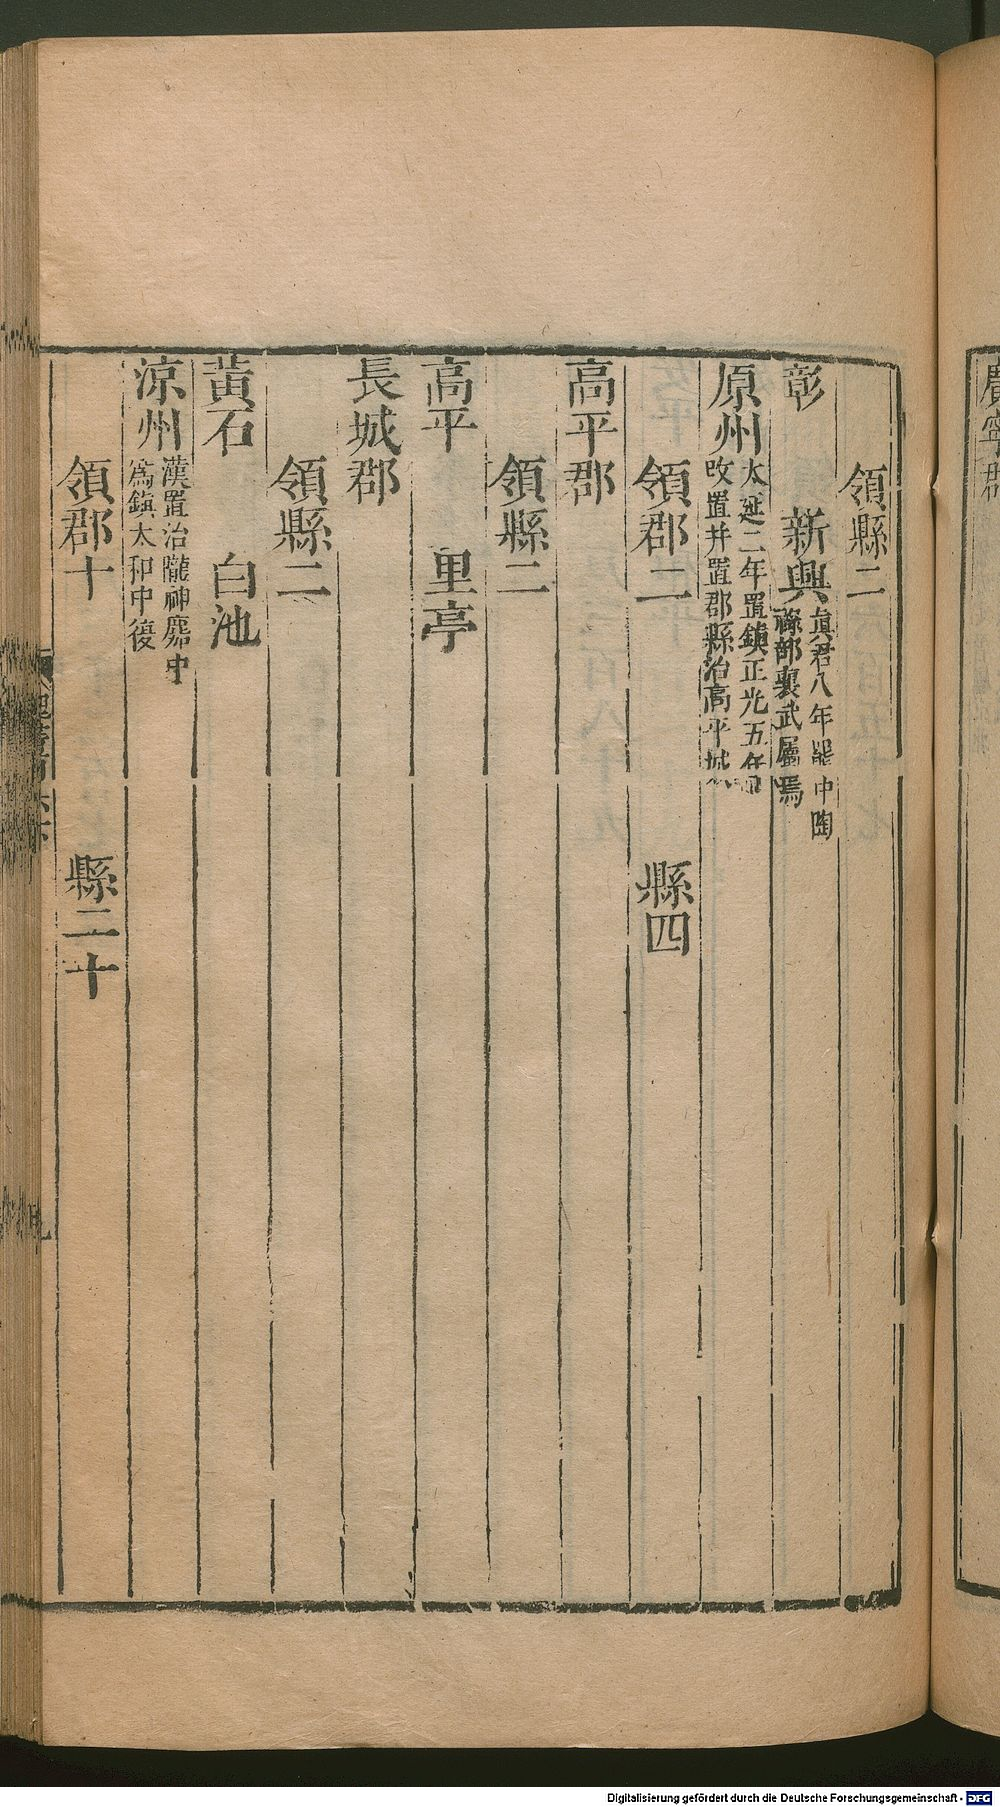 領縣二
彰　新興眞君八年罷中陶
祿部襄武屬焉
原州太延二年置鎮正光五年
改置并置郡縣治高平城
領郡二　縣四
高平郡
領縣二
高平　里亭
長城郡
領縣二
黃石　白池
涼州漢置治隴神䴥中
爲鎭太和中復
領郡十　縣二十
廣寧郡
Digitalisierung gefördert durch die Deutsche Forschungsgemeinschaft - DFG